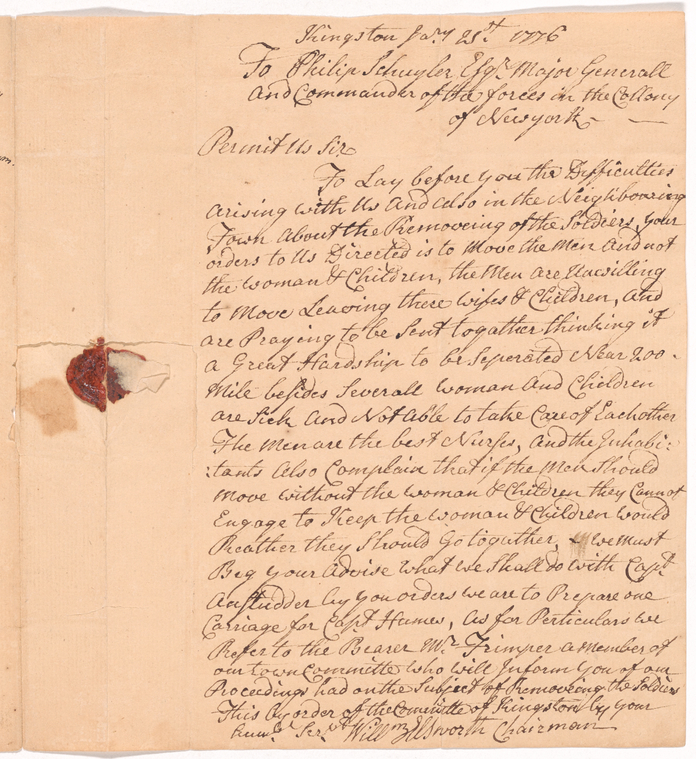 Kingston Jany 21st 1776
To Philip Schuyler Esqr Major Generall
And Commander of the forces in the Collony
of Newyork
Permit Us Sir
To Lay before you the Difficulties
arising with Us And also in the Neighbouring
Town About the Removeing of the Soldiers, your
orders to Us Directed is to Move the Men And not
the woman & Children, the Men are Unwilling
to Move Leaving there wifes & Children, and
are Praying to be Sent together thinking it
a Great Hardship to be Seperated Near 200
Mile besides Severall woman And Children
are Sick And Not Able to take Care of Eachother
The Men are the best Nurses, And the Inhabi:
:tants Also Complain that if the Men Should
Move without the woman & Children they Cannot
Engage to Keep the woman & Children would
Reather they Should Go together, we must
Beg your Advise what we Shall do with Capt
Anstudder by you orders we are to Prepare one
Carriage for Capt Humes, As for Particulars we
Refer to the Bearer Mr Trimper a Member of
our town Committe who will Inform you of our
Proceedings had on the Subject of Removeing the Soldiers
This by order of the Committe of Kingston by your
Humb Servt Willm Elsworth Chairman